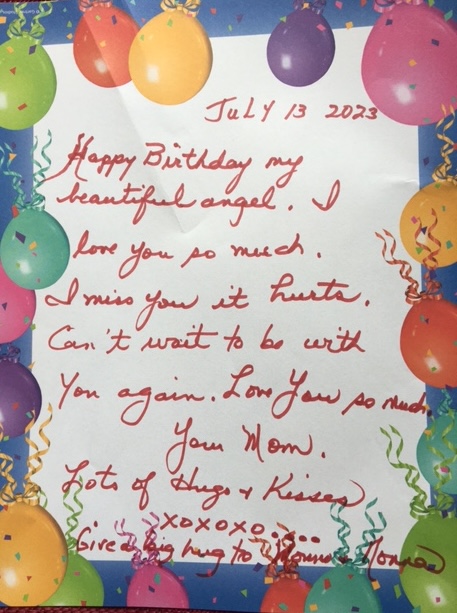 JULY 13 2023
Happy Birthday my
beautiful angel. I
love you so much.
I miss you it hurts.
Can't wait to be with
you again. Love You so much.
Your Mom.
Lots of Hugs + Kisses
xoxoxo...
Give a big hug to Nonna + Nonno